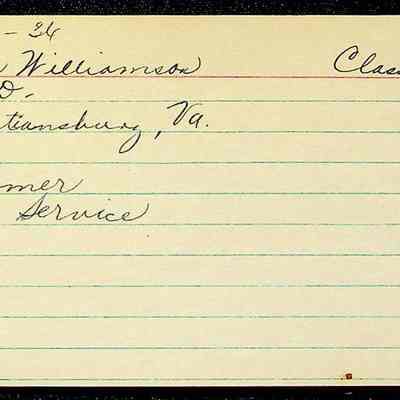 - 24
Williamson Class
D.
tiansburg, Va.
mer
Service